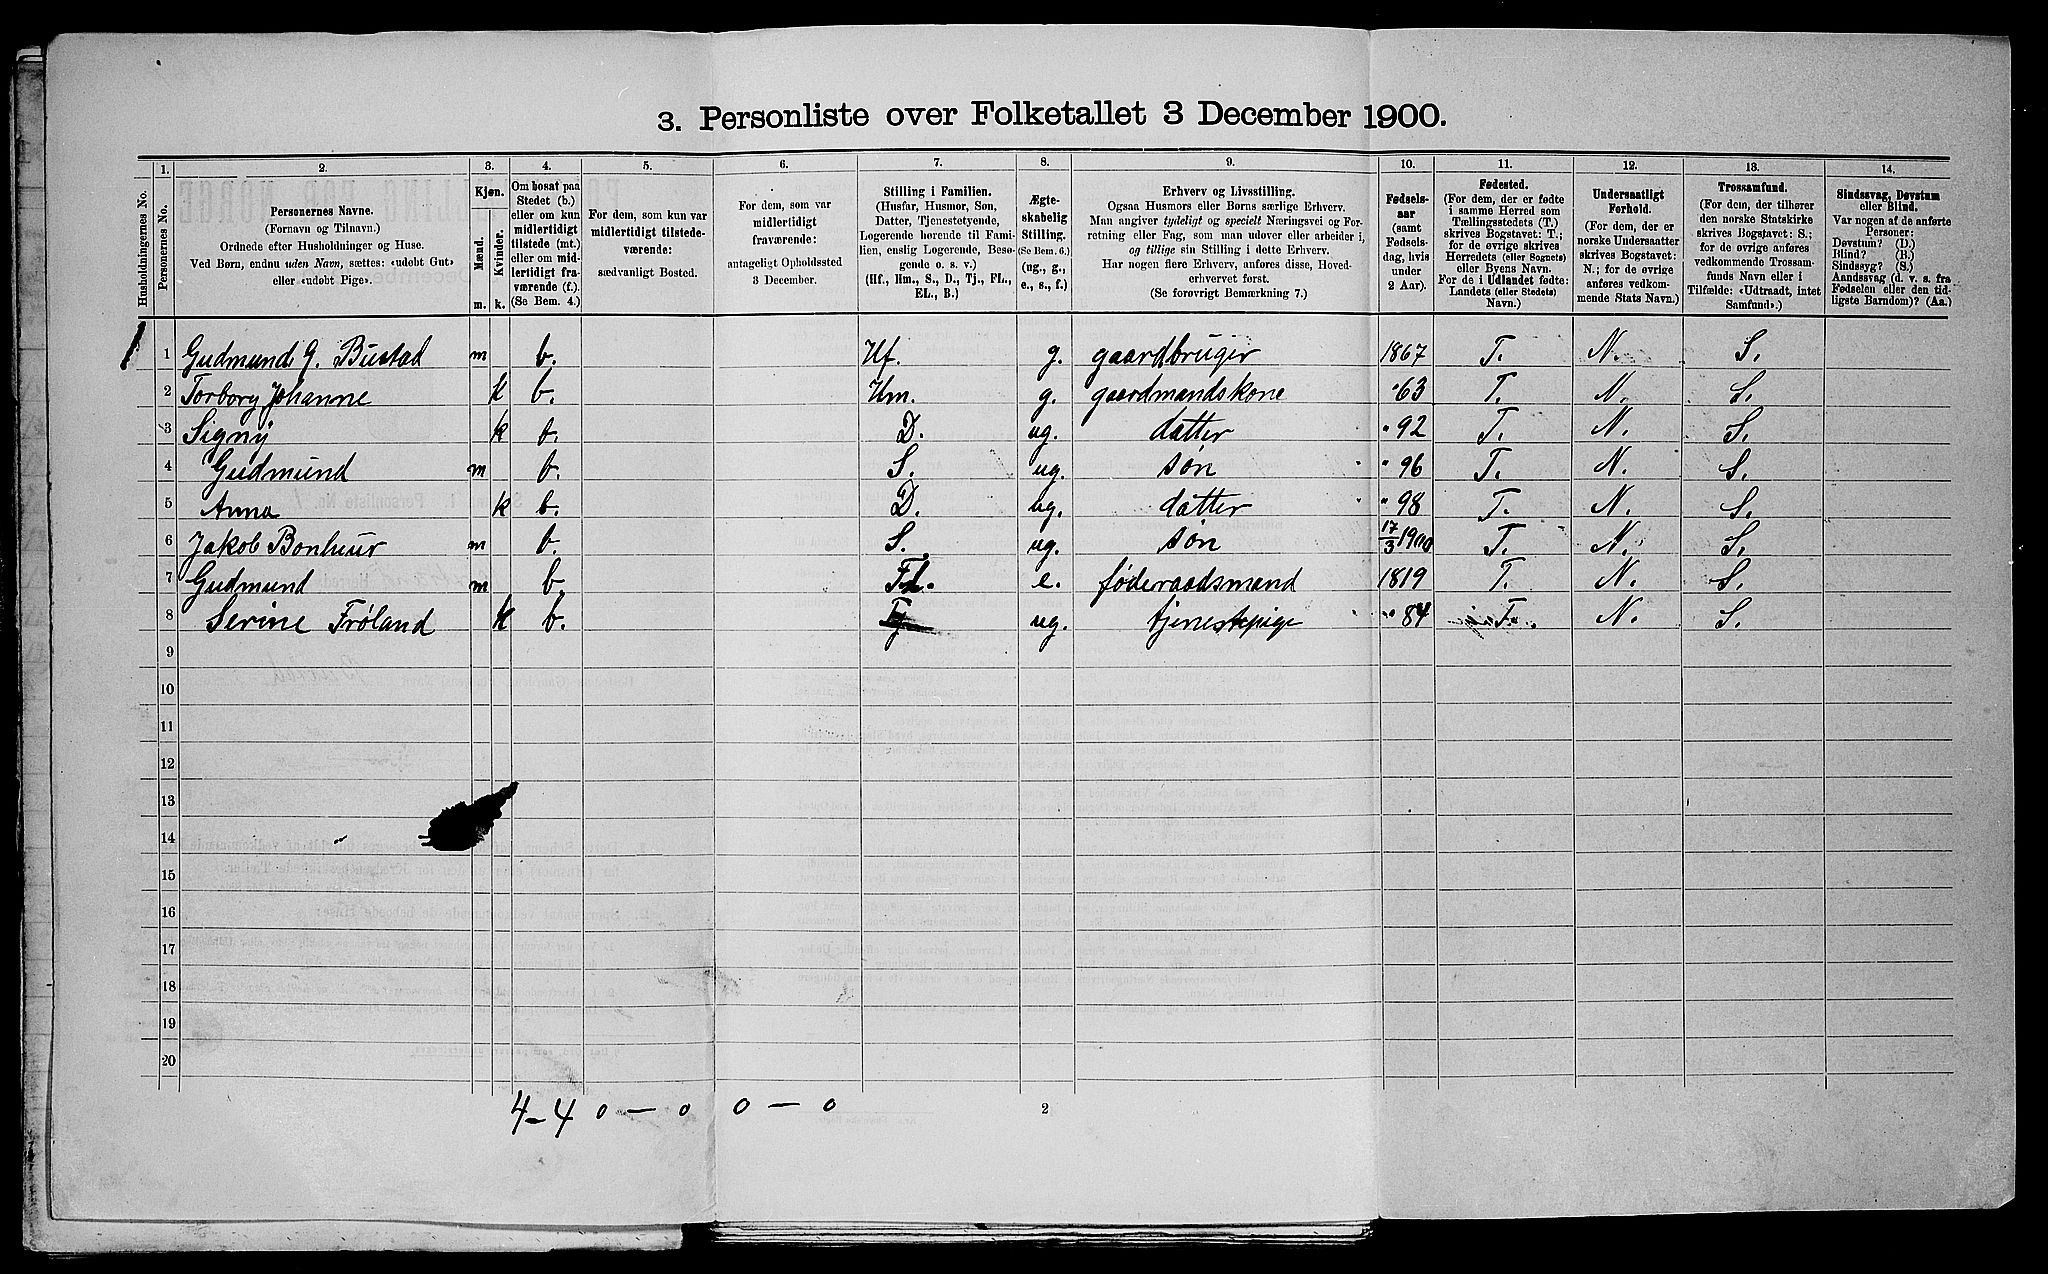 3. Personliste over Folketallet 3 December 1900.
1. 2. 3. 4. 5. 6. 7. 8. 9. 10. 11. 12. 13. 14.
Husholdningernes No.
Personernes No.
Personernes Navne.
(Fornavn og Tilnavn.)
Ordnede efter Husholdninger og Huse.
Ved Børn, endnu uden Navn, sættes: «udøbt Gut»
eller «udøbt Pige».
Kjøn.
Mænd.
Kvinder.
m. k.
Om bosat paa
Stedet (b.)
eller om kun
midlertidigt
tilstede (mt.)
eller om mid-
lertidigt fra-
værende (f.).
(Se Bem. 4.)
For dem, som kun var
midlertidigt tilstede-
værende:
sædvanligt Bosted.
For dem, som var
midlertidigt
fraværende:
antageligt Opholdssted
3 December.
Stilling i Familien.
(Husfar, Husmor, Søn,
Datter, Tjenestetyende,
Logerende hørende til Fami-
lien, enslig Logerende, Besø-
gende o. s. v.)
(Hf., Hm., S., D., Tj., FL.,
EL., B.)
Ægte-
skabelig
Stilling.
(Se Bem. 6.)
(ug., g.,
e., s., f.)
Erhverv og Livsstilling.
Ogsaa Husmors eller Børns særlige Erhverv.
Man angiver tydeligt og specielt Næringsvei og For-
retning eller Fag, som man udøver eller arbeider i,
og tillige sin Stilling i dette Erhverv.
Har nogen flere Erhverv, anføres disse, Hoved-
erhvervet først.
(Se forøvrigt Bemærkning 7.)
Fødsels-
aar
(samt
Fødsels-
dag, hvis
under
2 Aar).
Fødested.
(For dem, der er fødte
i samme Herred som
Tællingsstedets (T.)
skrives Bogstavet: T.;
for de øvrige skrives
Herredets (eller Sognets)
eller Byens Navn.
For de i Udlandet fødte:
Landets (eller Stedets)
Navn.)
Undersaatligt
Forhold.
(For dem, der er
norske Undersaatter
skrives Bogstavet:
N.; for de øvrige
anføres vedkom-
mende Stats Navn.)
Trossamfund.
(For dem, der tilhører
den norske Statskirke
skrives Bogstavet: S.;
for de øvrige anføres
vedkommende Trossam-
funds Navn eller i
Tilfælde: «Udtraadt, intet
Samfund».)
Sindssvag, Døvstum
eller Blind.
Var nogen af de anførte
Personer:
Døvstum? (D.)
Blind? (B.)
Sindssyg? (S.)
Aandssvag (d. v. s. fra
Fødselen eller den tid-
ligste Barndom)? (Aa.)
1 1 Gudmund G. Bustad m b. Hf. g. gaardbruger 1867 T. N. S.
2 Torborg Johanne k b. Hm. g. gaardmandskone "63 T. N. S.
3 Signy k b. D. ug. datter "92 T. N. S.
4 Gudmund m b. S. ug. søn "96 T. N. S.
5 Anna k b. D. ug. datter "98 T. N. S.
6 Jakob Bonheur m b. S. ug. søn 17/3 1900 T. N. S.
7 Gudmund m b. FL. e. føderaadsmand 1819 T. N. S.
8 Serine Frøland k b. Tj ug. tjenestpige "84 T. N. S.
9
10
11
12
13
14
15
16
17
18
19
20
4-4 0-0 0-0
2